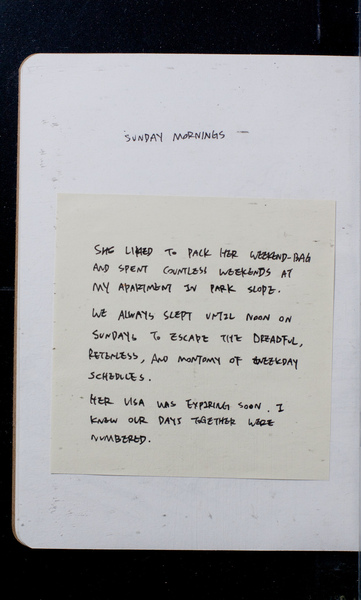 SUNDAY MORNINGS —
SHE LIKED TO PACK HER WEEKEND-BAG
AND SPENT COUNTLESS WEEKENDS AT
MY APARTMENT IN PARK SLOPE.
WE ALWAYS SLEPT UNTIL NOON ON
SUNDAYS TO ESCAPE THE DREADFUL,
RETENLESS, AND MONTOMY OF WEEKDAY
SCHEDULES.
HER VISA WAS EXPIRING SOON. I
KNEW OUR DAYS TOGETHER WERE
NUMBERED.